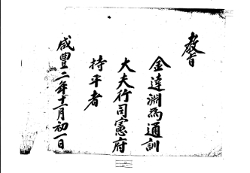 敎旨
金達淵爲通訓
大夫行司憲府
持平者
咸豊二年十二月初一日